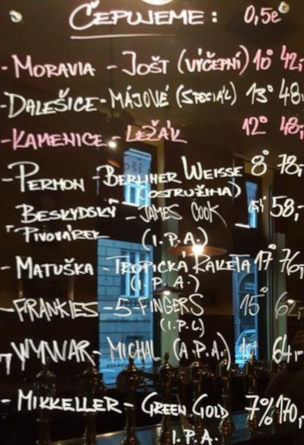 ČEPUJEME: 0,5ℓ
- MORAVIA - JOŠT (VÝČEPNÍ) 10° 42,-
- DALEŠICE - MÁJOVÉ (SPECIÁL) 13° 48,
- KAMENICE - LEŽÁK 12° 48,-
- PERMON - BERLINER WEISSE 8° 78,-
(OSTRUŽINA)
- BESKYDSKÝ - JAMES COOK 58,-
PIVOVÁREK (I.P.A.)
- MATUŠKA - TROPICKÁ RAKETA 17° 76,
(I.P.A.)
- FRANKIES - 5 FINGERS 15° 62,
(I.P.L)
- WYWAR - MICHAL (A.P.A.) 64,
- MIKKELLER - GREEN GOLD 7% 170,-
I.P.A.